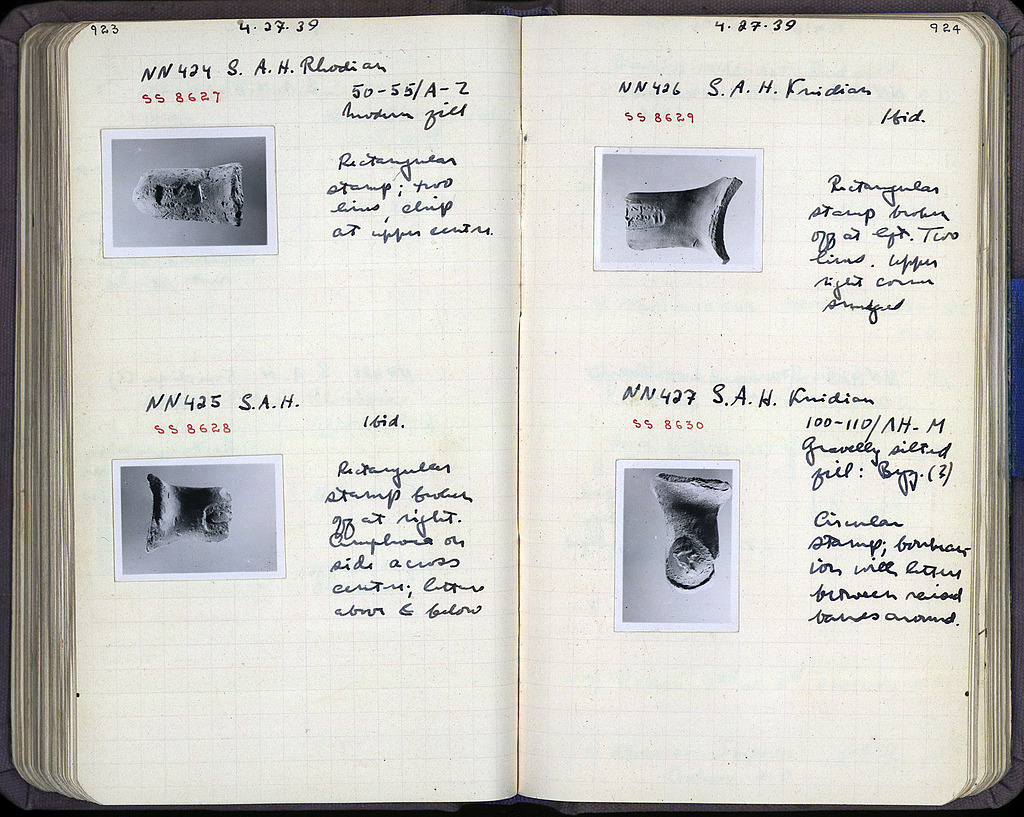 923
4.27.39
NN424 S. A. H. Rhodian
SS 8627
50-55/A-Z
Modern fill
Rectangular
stamp; two
lines, chip
at upper centre.
NN425 S.A.H.
SS 8628
Ibid.
Rectangular
stamp broken
off at right.
Amphora on
side across
centre; letters
above & below
924
4.27.39
NN426 S.A.H. Knidian
SS 8629
Ibid.
Rectangular
stamp broken
off at left. Two
lines. upper
right corner
smudged
NN427 S.A.H. Knidian
SS 8630
100-110/ΛH-M
Gravelly silted
fill: Byz. (?)
Circular
stamp;
with letters
between raised
bands around.